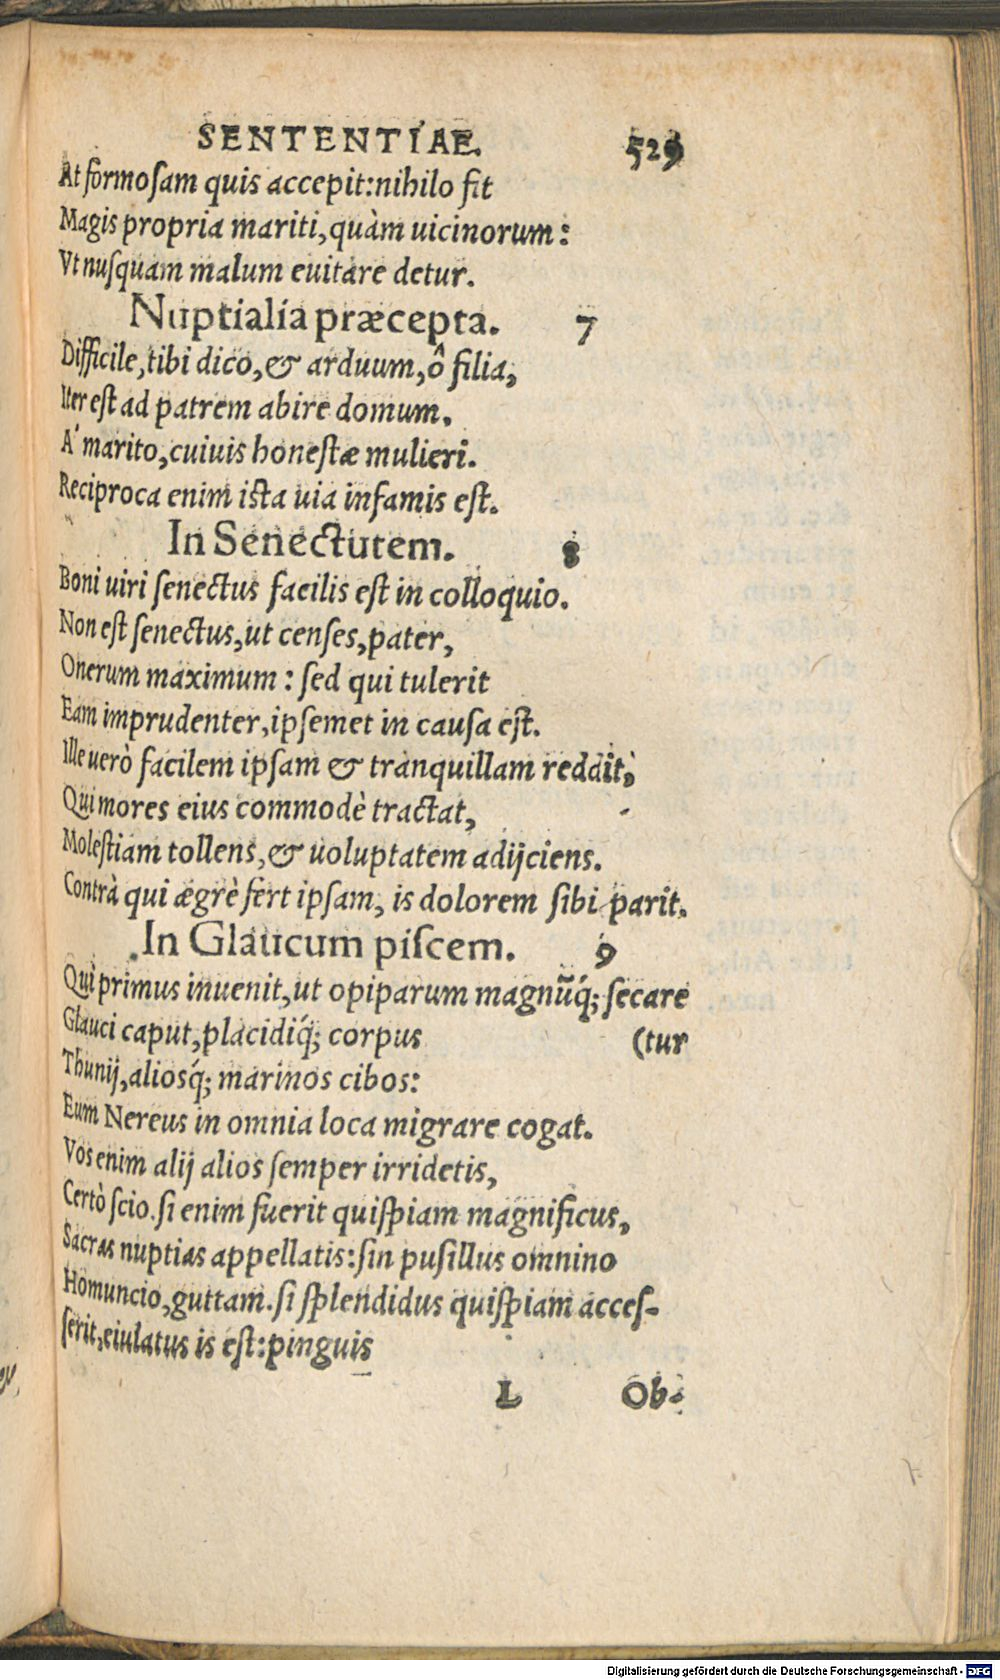 SENTENTIAE. 529
At formosam quis accepit:nihilo fit
Magis propria mariti,quàm uicinorum:
Vt nusquam malum euitare detur.
Nuptialia præcepta. 7
Difficile,tibi dico,& arduum,ô filia,
Iter est ad patrem abire domum.
A' marito,cuiuis honestæ mulieri.
Reciproca enim ista uia infamis est.
In Senectutem. 8
Boni uiri senectus facilis est in colloquio.
Non est senectus,ut censes,pater,
Onerum maximum: sed qui tulerit
Eam imprudenter,ipsemet in causa est.
Ille uerò facilem ipsam & tranquillam reddit,
Qui mores eius commodè tractat,
Molestiam tollens,& uoluptatem adijciens.
Contrà qui ægrè fert ipsam, is dolorem sibi parit.
In Glaucum piscem. 9
Qui primus inuenit,ut opiparum magnũq́; secare
Glauci caput,placidiq́; corpus (tur
Thunij,aliosq́; marinos cibos:
Eum Nereus in omnia loca migrare cogat.
Vos enim alij alios semper irridetis,
Certò scio.si enim fuerit quispiam magnificus,
Sacras nuptias appellatis:sin pusillus omnino
Homuncio,guttam.si splendidus quispiam acces-
serit,eiulatus is est:pinguis
L Ob-
Digitalisierung gefördert durch die Deutsche Forschungsgemeinschaft - DFG